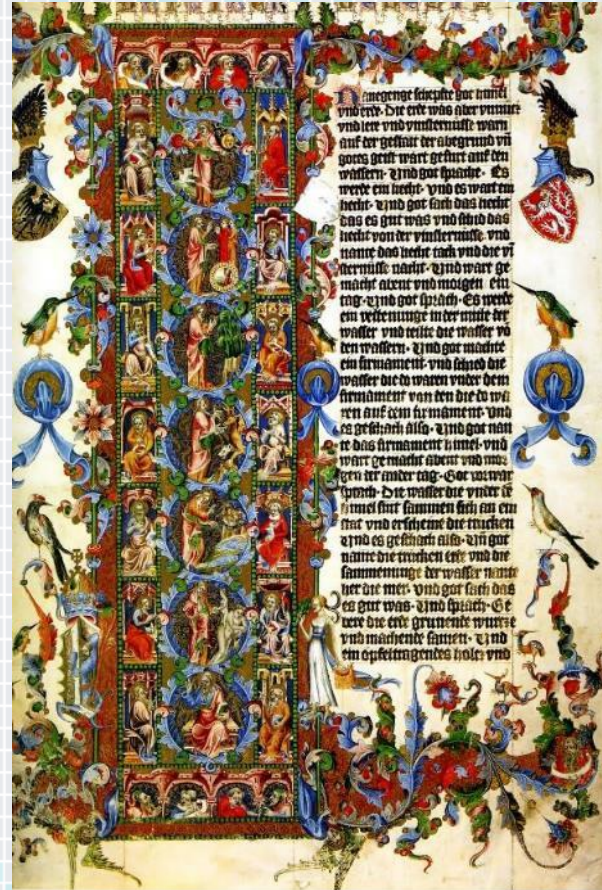 Anegenge schepfte got himel
vnd erde · Die erde was aber vnnutz
vnd lere vnd vinsternusse warn
auf der gestalt der abegrund vn
gotes geist wart gefurt auf den
wassern · Vnd got sprache · Es
werde ein liecht · vnd es wart ein
liecht · Vnd got sach das liecht
das es gut was vnd schid das
liecht von der vinsternusse · vnd
nante das liecht tack vnd die vi
sternusse nacht · Vnd wart ge
macht abent vnd morgen ein
tag · Vnd got sprach · Es werde
ein vestenunge in der mitte der
wasser vnd teilte die wasser vo
den wassern · Vnd got machte
ein firmament · vnd schied die
wasser die do waren vnder dem
firmament von den die do wa
ren auf dem firmament · vnd
es geschach also · Vnd got nan
te das firmament himel · vnd
wart gemacht abent vnd mor
gen der ander tag · Got vorwar
sprach · Die wasser die vnder de
himel sint sammen sich an ein
stat vnd erscheine die trucken
Vnd es geschach also · Vn got
nante die trucken erde vnd die
sammenunge der wasser nante
her die mer · vnd got sach das
es gut was · Vnd sprach · Ge
bere die erde grunende wurtze
vnd machende samen · Vnd
ein opfeltragendes holtz vnd